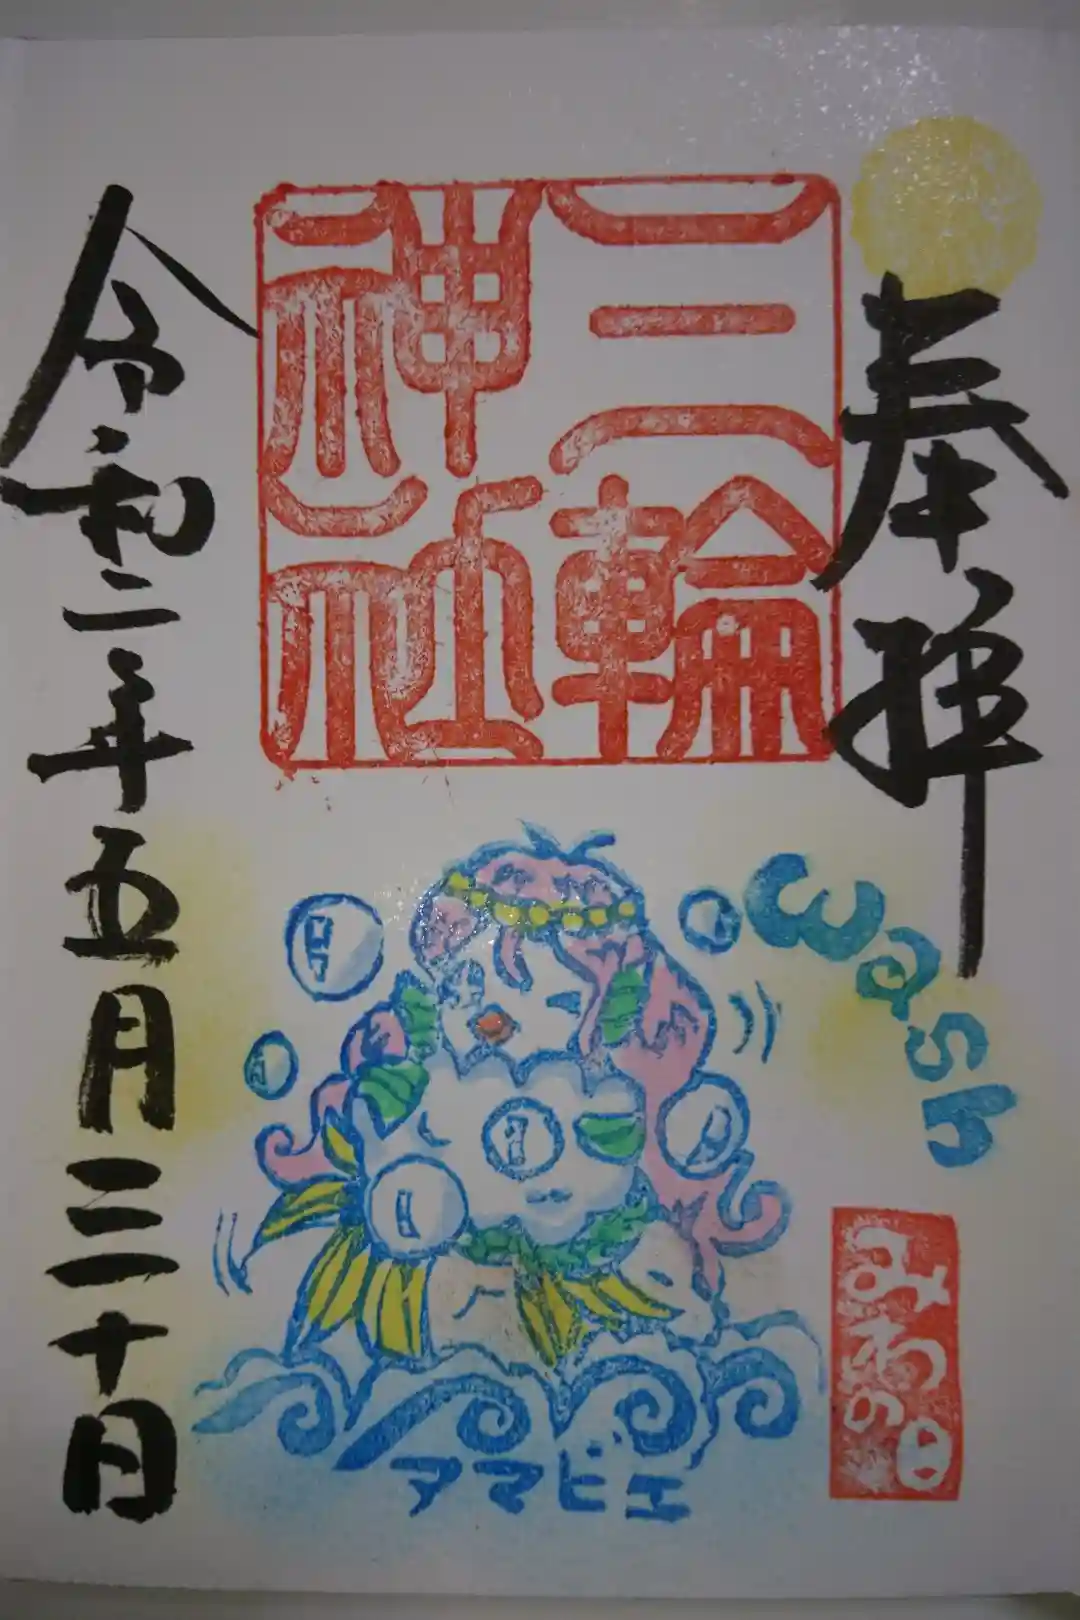 奉拝
三輪
神社
令和二年五月三十日
Wash
みわの日
アマビエ